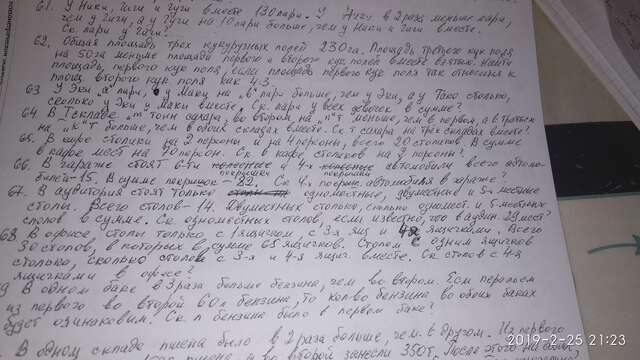 61. У Ники, Гиги и Гуги вместе 130 пари. У Гиги в 2 раза меньше пари,
чем у Гиги, а у Гуги на 10 пари больше, чем у Ники и Гиги вместе.
Ск. пари у Гуги?
62. Общая площадь трех кукурузных полей 230 га. Площадь третьего кук поля
на 50 га меньше площади первого и второго кук полей вместе взятых. Найти
площадь первого кук. поля, если площадь первого кук поля так относится к
площ. второго кук. поля как 4:5
63 У Эки "а" пари, у Маки на "в" пари больше, чем у Эки, а у Тако столько,
сколько у Эки и Маки вместе. Ск. пари у всех девочек в сумме?
64. В I складе "m" тонн сахара, во втором на "n" т меньше, чем в первом, а в третьем
на "к" т больше, чем в обоих складах вместе. Ск т сахара на трех складах вместе?
65. В кафе столики на 2 персоны и на 4 персоны, всего 20 столиков. В сумме
в кафе мест на 70 персон. Ск. в кафе столиков на 2 персоны?
66. В гараже стоят 6-ти и 4-х автомобили всего автомо-
билей-15. В сумме покрышек - 82. Ск. 4х покрыш. автомобилей в гараже?
67. В аудитории стоят только одноместные, двуместные и 5-и местные
столы. Всего столов-14. Двуместных столько, сколько одномест. и 5-местных
столов в сумме. Ск. одноместных столов, если известно, что в аудит. 29 мест?
68 В офисе, столы только с 1 ящиком, с 3-я ящ. и 4-я ящичками. Всего
30 столов, в которых в сумме 65 ящичков. Столов с одним ящичков
столько, сколько столов с 3-я и 4-я ящич. вместе. Ск. столов с 4-я
ящичками в офисе?
9 В одном баке в 3 раза больше бензина, чем во втором. Если перельем
из первого во второй 60 л бензина, то кол-во бензина во обоих баках
будет одинаковым. Ск. л бензина было в первом баке?
В одном складе пшена было в 2 раза больше, чем в другом. Из первого
пшена, и во второй занесли 350т. После этого на обоих
2019-2-25 21:23